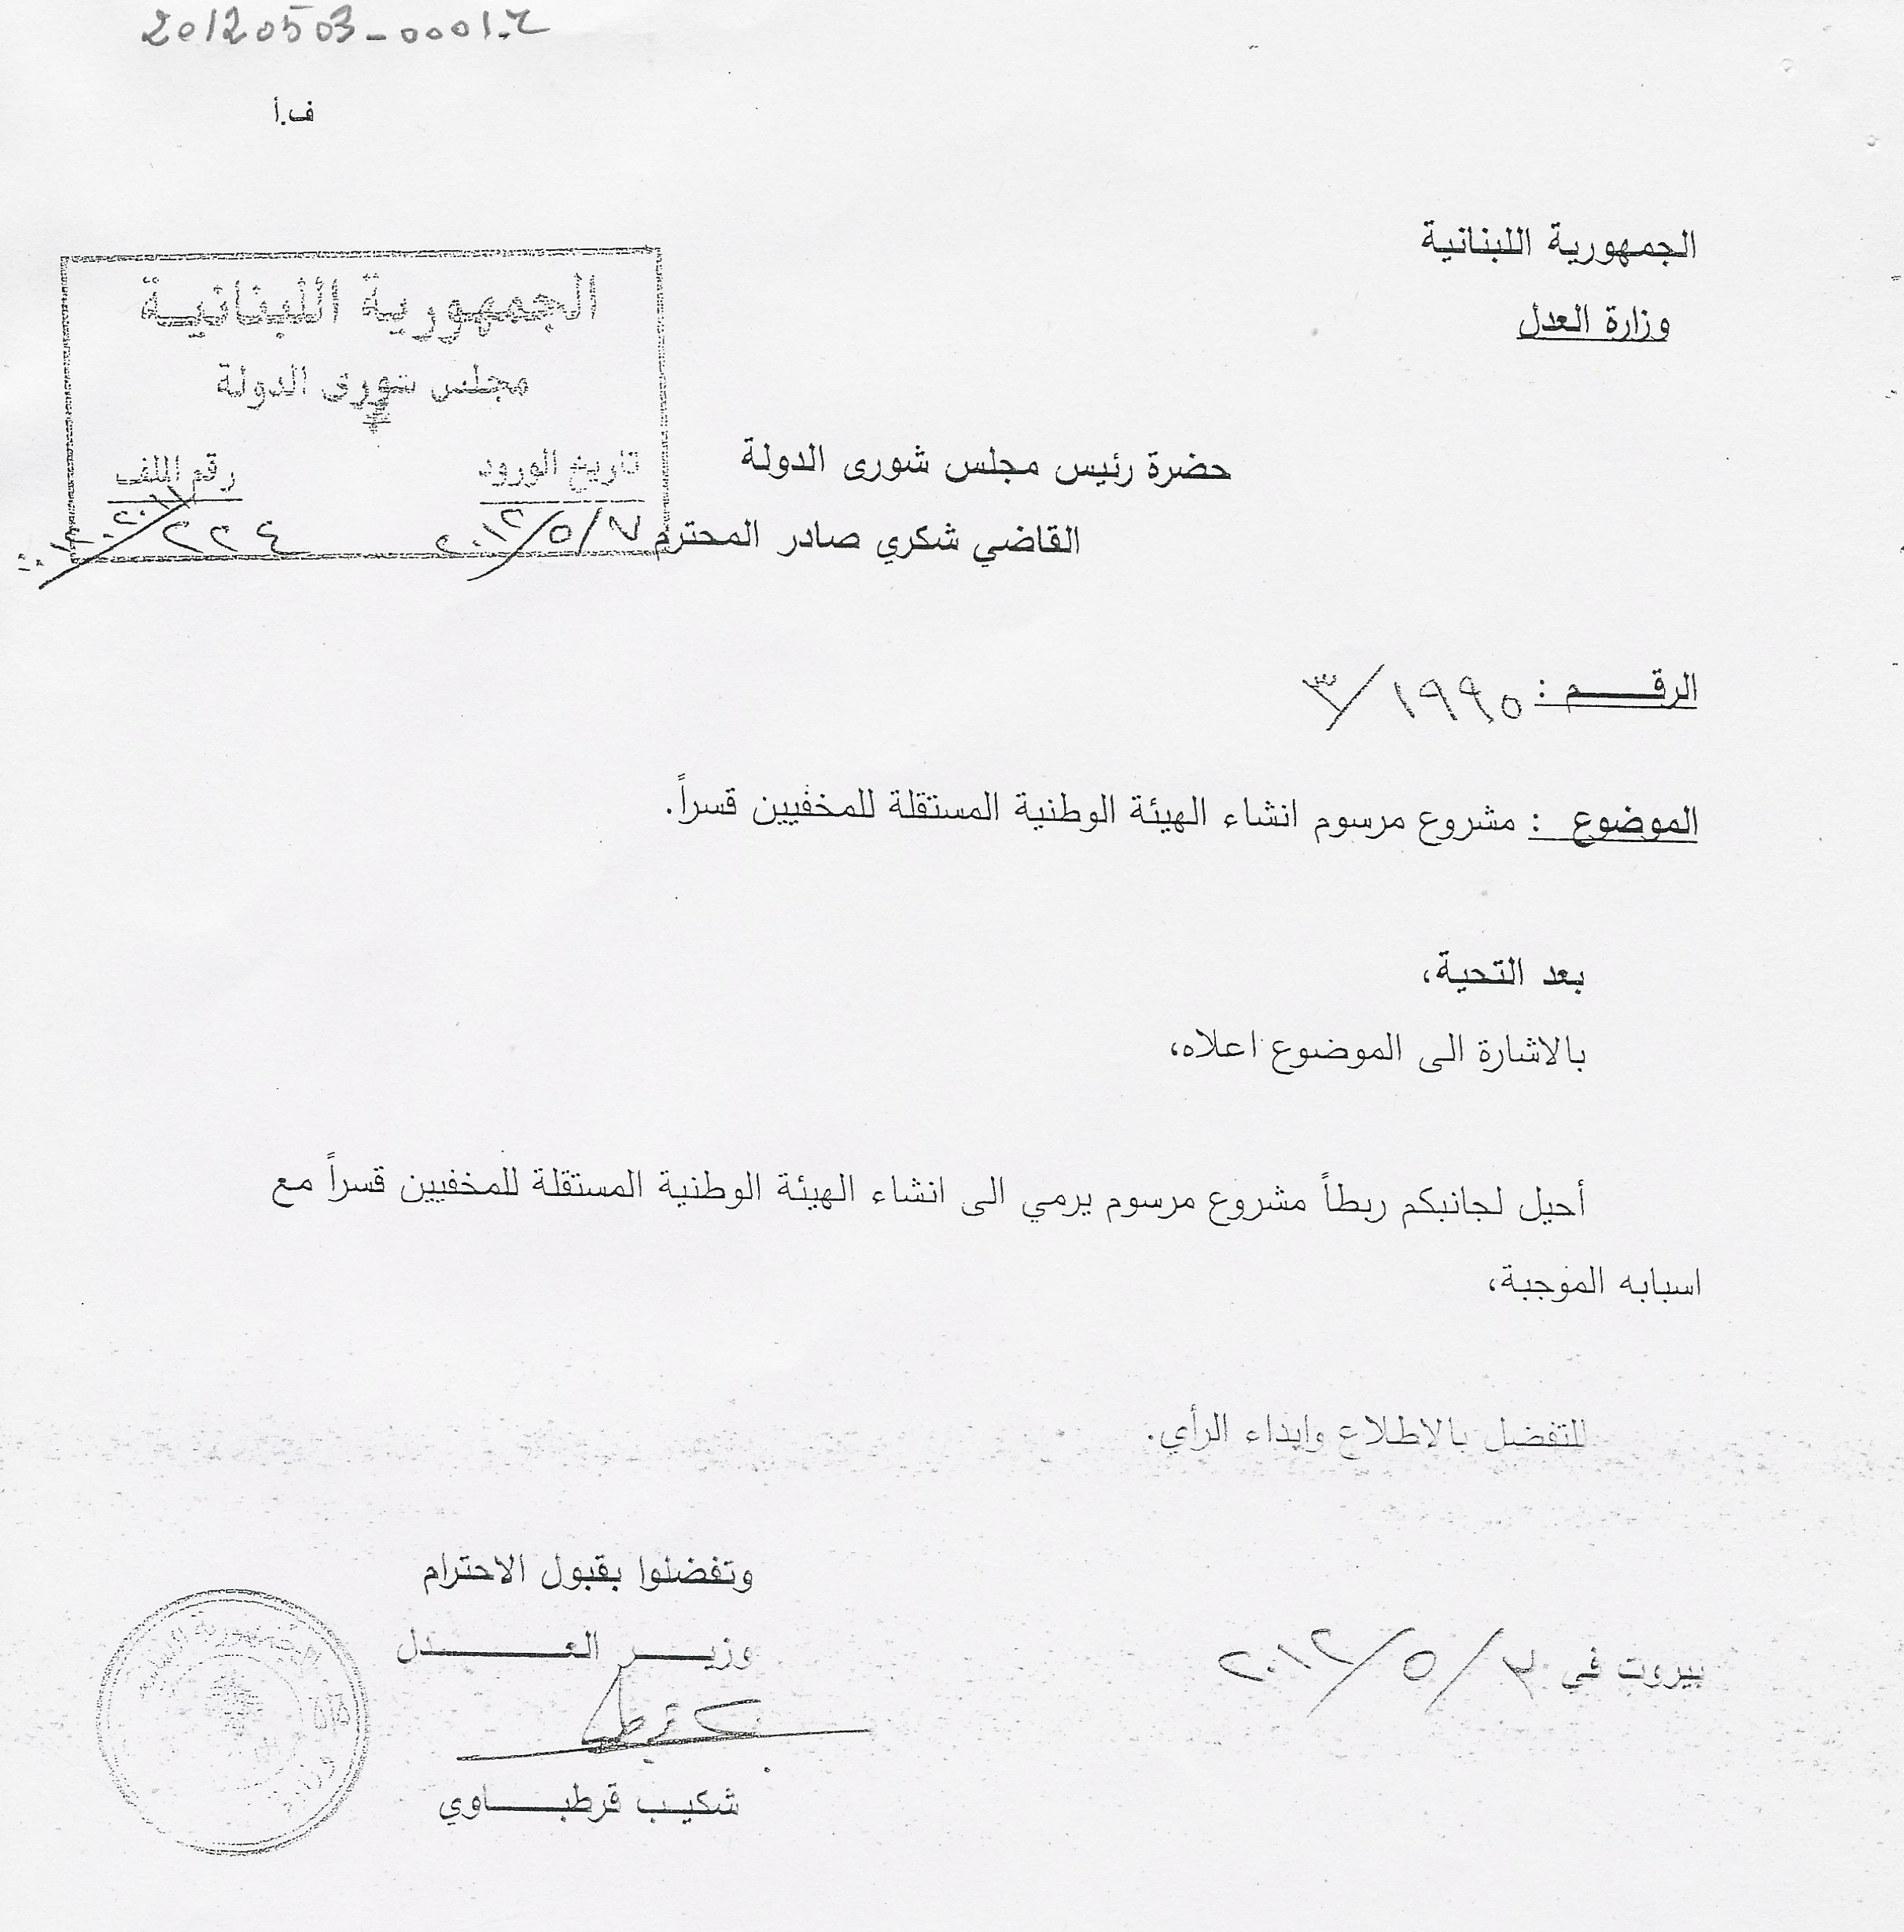 20120503-0001-
ف.أ
الجمهورية اللبنانية
وزارة العدل
الجمهورية اللبنانية
مجلس شورى الدولة
تاريخ الورود رقم الملف
٢٠١٢/٥/٧ ٢٢٤
حضرة رئيس مجلس شورى الدولة
القاضي شكري صادر المحترم
الرقـــم : ٣/١٩٩٥
الموضوع : مشروع مرسوم انشاء الهيئة الوطنية المستقلة للمخفيين قسراً.
بعد التحية،
بالاشارة الى الموضوع اعلاه،
أحيل لجانبكم ربطاً مشروع مرسوم يرمي الى انشاء الهيئة الوطنية المستقلة للمخفيين قسراً مع
اسبابه الموجبة،
للتفضل بالاطلاع وابداء الرأي.
وتفضلوا بقبول الاحترام
وزيـــر العـــــــدل
بيروت في ٣/٥/٢٠١٢
شكيـب قرطبـــاوي
الجمهورية اللبنانية
وزارة